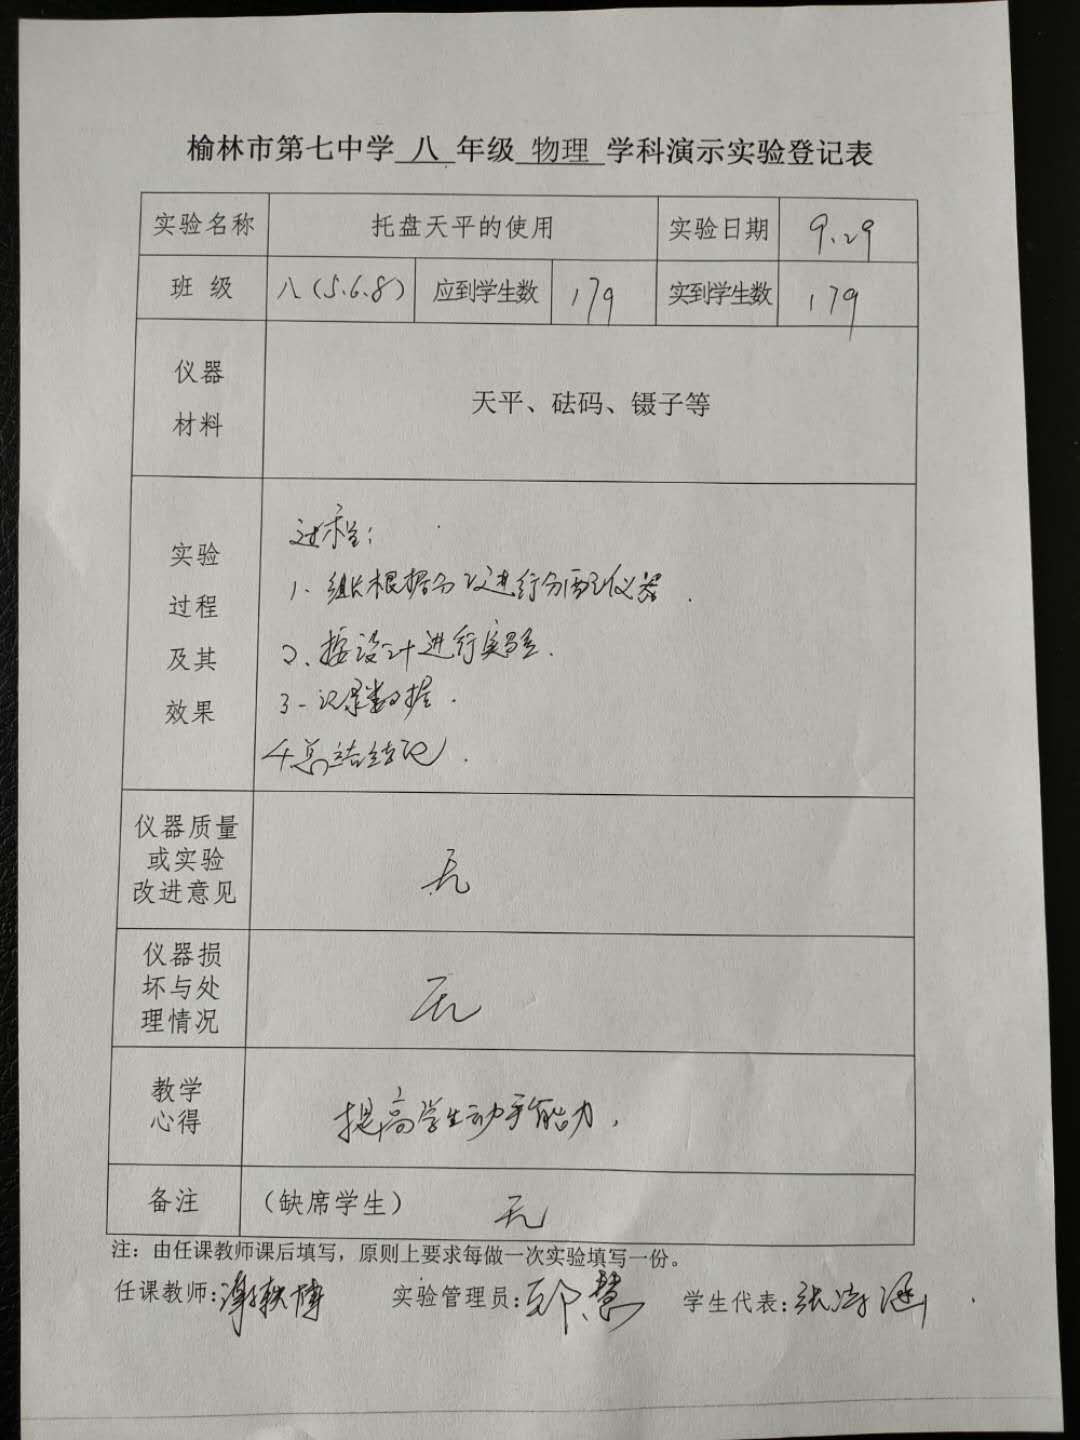 榆林市第七中学 八 年级 物理 学科演示实验登记表
实验名称 托盘天平的使用 实验日期 9.29
班 级 八(5.6.8) 应到学生数 179 实到学生数 179
仪器
材料
天平、砝码、镊子等
实验
过程
及其
效果
过程:
1、组长根据分工进行分配仪器.
2、按设计进行实验.
3-记录数据.
4总结结论.
仪器质量
或实验
改进意见
无
仪器损
坏与处
理情况
无
教学
心得
提高学生动手能力.
备注 (缺席学生) 无
注:由任课教师课后填写,原则上要求每做一次实验填写一份。
任课教师:谢轶博 实验管理员: 慧 学生代表:张 涵